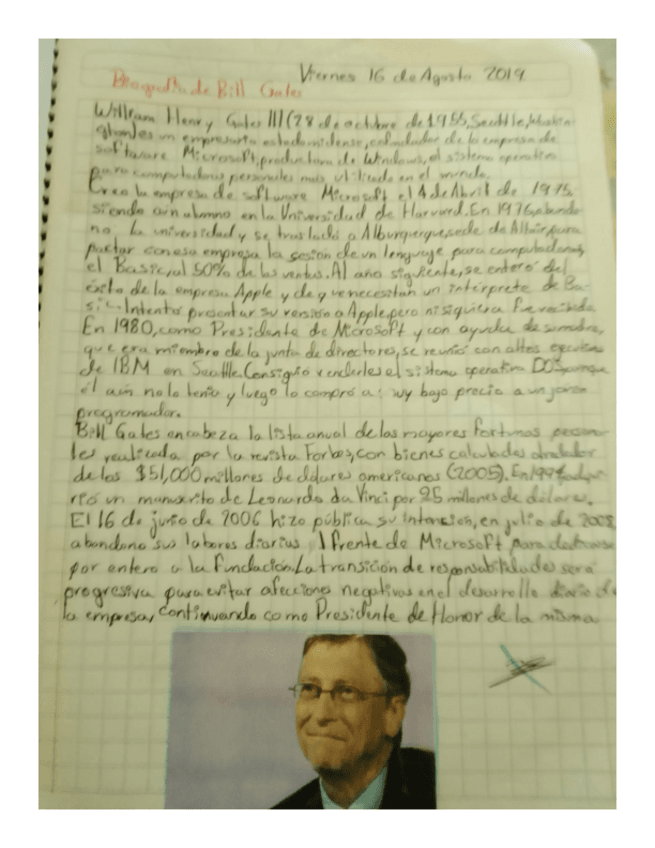 Viernes 16 de Agosto 2019
Biografía de Bill Gates
William Henry Gates III (28 de octubre de 1955, Seattle, Washin-
ghton) es un empresario estadounidense, cofundador de la empresa de
software Microsoft, productora de Windows, el sistema operativo
para computadoras personales más utilizado en el mundo.
Creo la empresa de software Microsoft el 4 de Abril de 1975,
siendo aún alumno en la Universidad de Harvard. En 1976, abando
no, la universidad y se trasladó a Alburquerque, sede de Altair, para
pactar con esa empresa la sesion de un lenguaje para computadoras,
el Basic, al 50% de las ventas. Al año siguiente, se enteró del
éxito de la empresa Apple y de q ve necesitan un intérprete de Ba-
sic. Intentó presentar su versión a Apple, pero ni siquiera fue recibida
En 1980, como Presidente de Microsoft y con ayuda de su madre,
que era miembro de la junta de directora, se reunió con altos
de IBM en Seattle. Consiguió venderles el sistema operativo DOS, aunque
él aún no lo tenía y luego lo compró a: uy bajo precio a un joven
programador.
Bill Gates encabeza la lista anual de las mayores fortunas persona
les realizada por la revista Forbes, con bienes calculados alrededor
de los $51,000 millones de dólares americanos (2005). En 1994, adqui-
rió un manuscrito de Leonardo da Vinci por 25 millones de dolares.
El 16 de junio de 2006 hizo pública su intension, en julio de 2008,
abandono sus labores diarias l frente de Microsoft para dedicarse
por entero a la fundacion. La transición de responsabilidades será
progresiva para evitar afecciones negativas en el desarrollo diario de
la empresa, continuando como Presidente de Honor de la misma